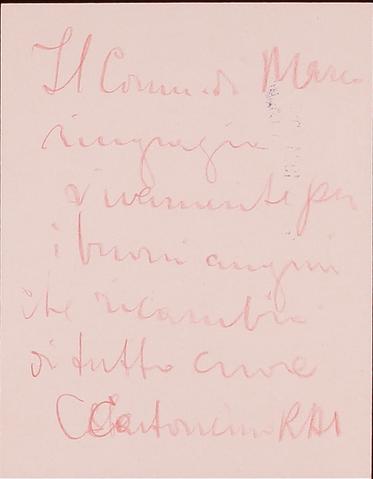 Il Comm. di Marco
ringrazia
vivamente per
i buoni auguri
che ricambia
di tutto cuore
(Cartoncino RAI